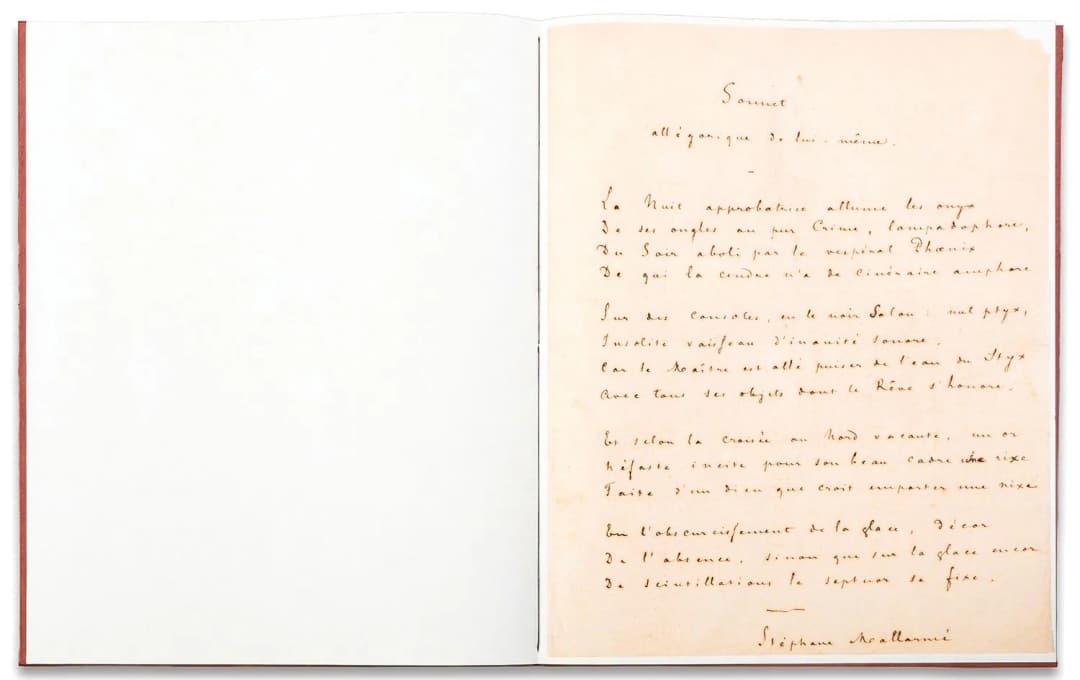 Sonnet
allégorique de lui-même.
La Nuit approbatrice allume les onyx
De ses ongles au pur Crime, lampadophore,
Du Soir aboli par le vespéral Phœnix
De qui la cendre n'a de cinéraire amphore
Sur des consoles, en le noir Salon : nul ptyx,
Insolite vaisseau d'inanité sonore,
Car le Maître est allé puiser de l'eau du Styx
Avec tous ses objets dont le Rêve s'honore.
Et selon la croisée au Nord vacante, un or
Néfaste incite pour son beau cadre une rixe
Faite d'un dieu que croit emporter une nixe
En l'obscurcissement de la glace, Décor
De l'absence, sinon que sur la glace encor
De scintillations le septuor se fixe.
Stéphane Mallarmé